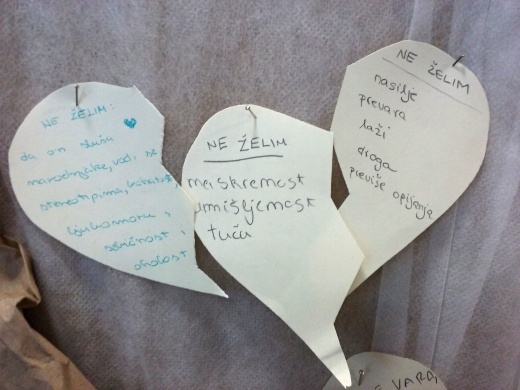 NE ŽELIM:
da on sluša
narodnjake, vodi se
stereotipima,
ljubomoru,
sebičnost,
oholost
NE ŽELIM
neiskrenost
umišljenost
tuču
NE ŽELIM
nasilje
prevara
laži
droga
previše opijanja
VARA